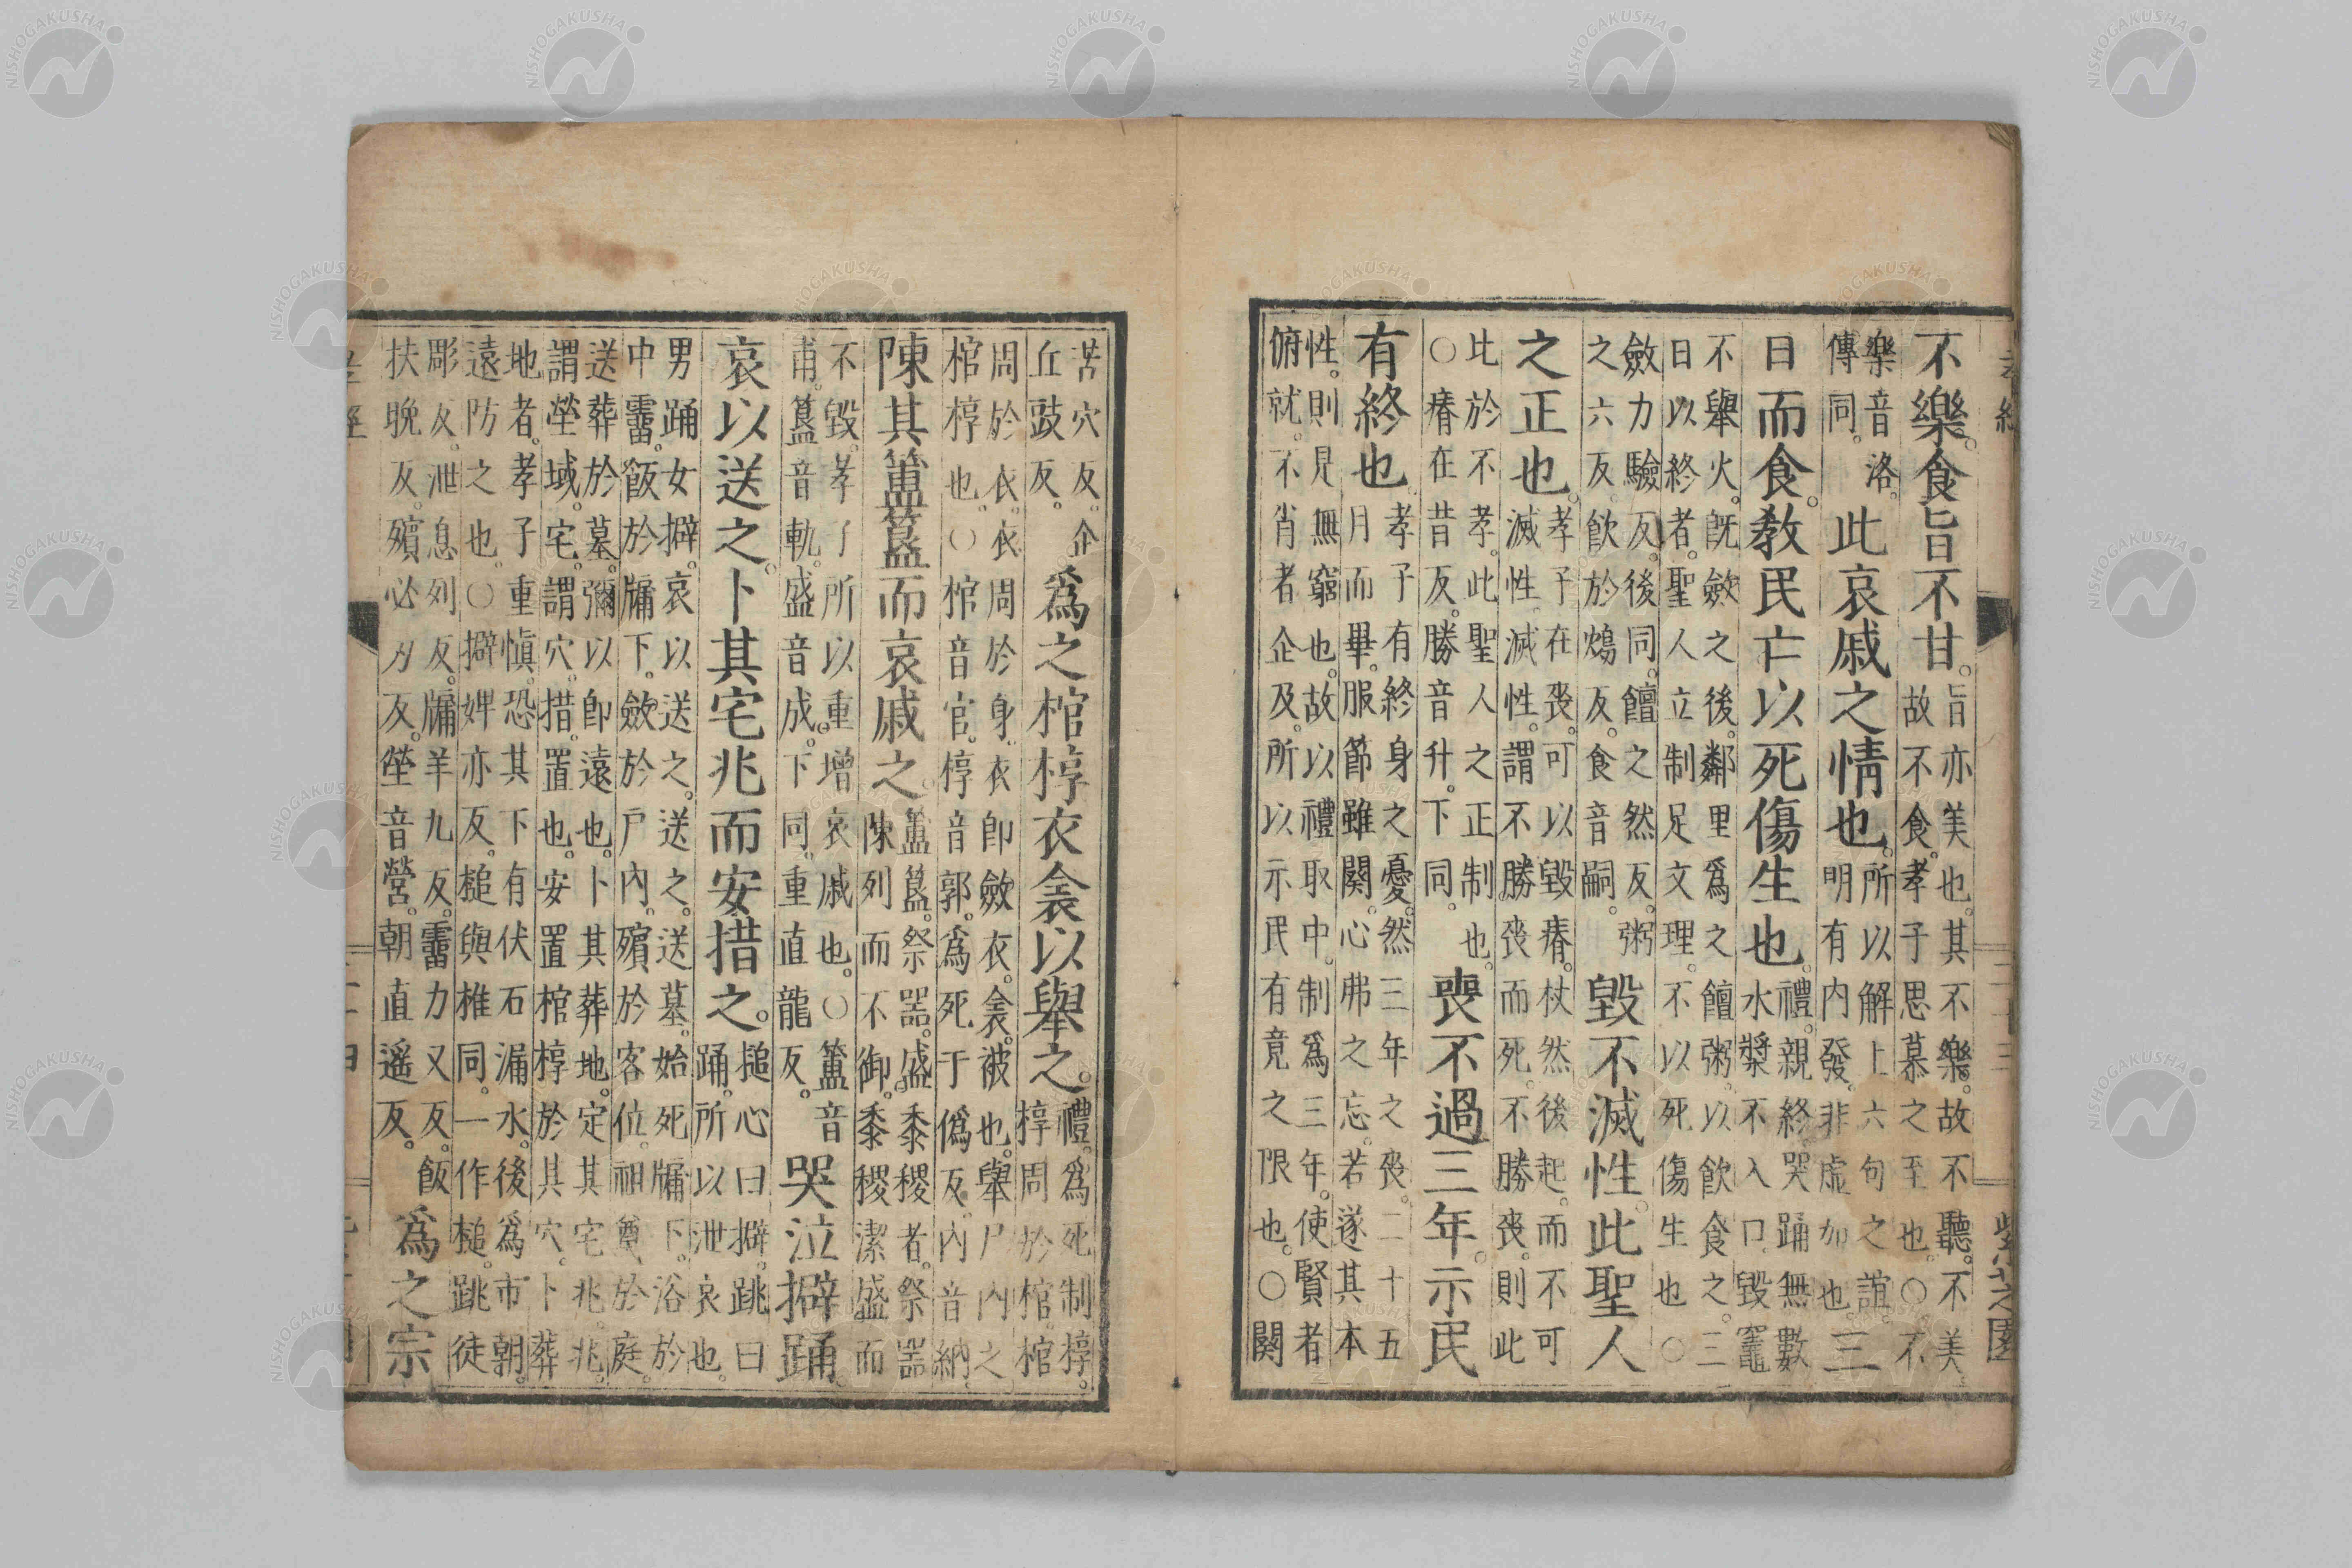 不樂。食旨不甘。
旨亦美也。其不樂。故不聽。不美。
故不食。孝子思慕之至也。○不
樂音洛。
傳同。
此哀戚之情也。
所以解上六句之誼。
明有内發。非虛加也。
三
日而食。教民亡以死傷生也。
禮。親終哭踊無數。
水漿不入口。毀竈
不舉火。既斂之後。鄰里爲之饘粥。以飲食之。三
日以終者。聖人立制足文理。不以死傷生也○
斂力驗反。後同。饘之然反。粥
之六反。飲於鴆反。食音嗣。
毀不滅性。此聖人
之正也。
孝子在喪。可以毀瘠。杖然後起。而不可
滅性滅性。謂不勝喪而死。不勝喪。則此
比於不孝。此聖人之正制也。
○瘠在昔反。勝音升。下同。
喪不過三年。示民
有終也。
孝子有終身之憂。然三年之喪。二十五
月而畢。服節雖闋。心弗之忘。若遂其本
性。則是無窮也。故以禮取中。制爲三年。使賢者
俯就。不肖者企及。所以示民有竟之限也。○闋
苦穴反。企
丘豉反。
爲之棺椁衣衾以舉之。
禮。爲死制椁。
椁周於棺。棺
周於衣。衣周於身。衣即斂衣。衾被也。舉尸内之
棺椁也。○棺音官。椁音郭。爲死于僞反。内音納。
陳其簠簋而哀戚之。
簠簋。祭器。盛黍稷者。祭器
陳列而不御。黍稷潔盛而
不毀。孝子所以重增哀戚也。○簠音
甫。簋音軌。盛音成。下同。重直龍反。
哭泣擗踊。
哀以送之。卜其宅兆而安措之。
搥心曰擗。跳曰
踊。所以泄哀也。
男踊女擗。哀以送之。送之。送墓。始死牖下。浴於
中霤。飯於牖下。斂於戶內。殯於客位。祖奠於庭。
送葬於墓。彌以即遠也。卜其葬地。定其宅兆。兆。
謂塋域。宅。謂穴。措。置也。安置棺椁於其穴。卜葬
地者。孝子重慎。恐其下有伏石漏水。後爲市朝。
遠防之也。○擗婢亦反。搥與椎同。一作槌。跳徒
彫反。泄息列反。牖羊九反。霤力又反。飯
扶晚反。殯必刃反。塋音營。朝直遙反。
爲之宗
紫芝園
NISHOGAKUSHA